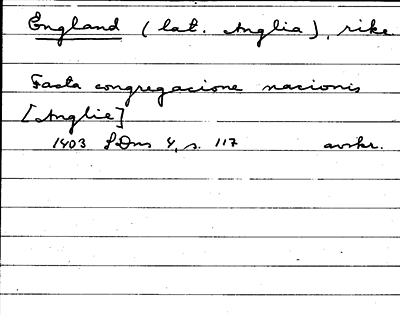 England (lat. Anglia), rike
Facta congregacione nacionis
[Anglie]
1403 SDns 4, s. 117 avskr.